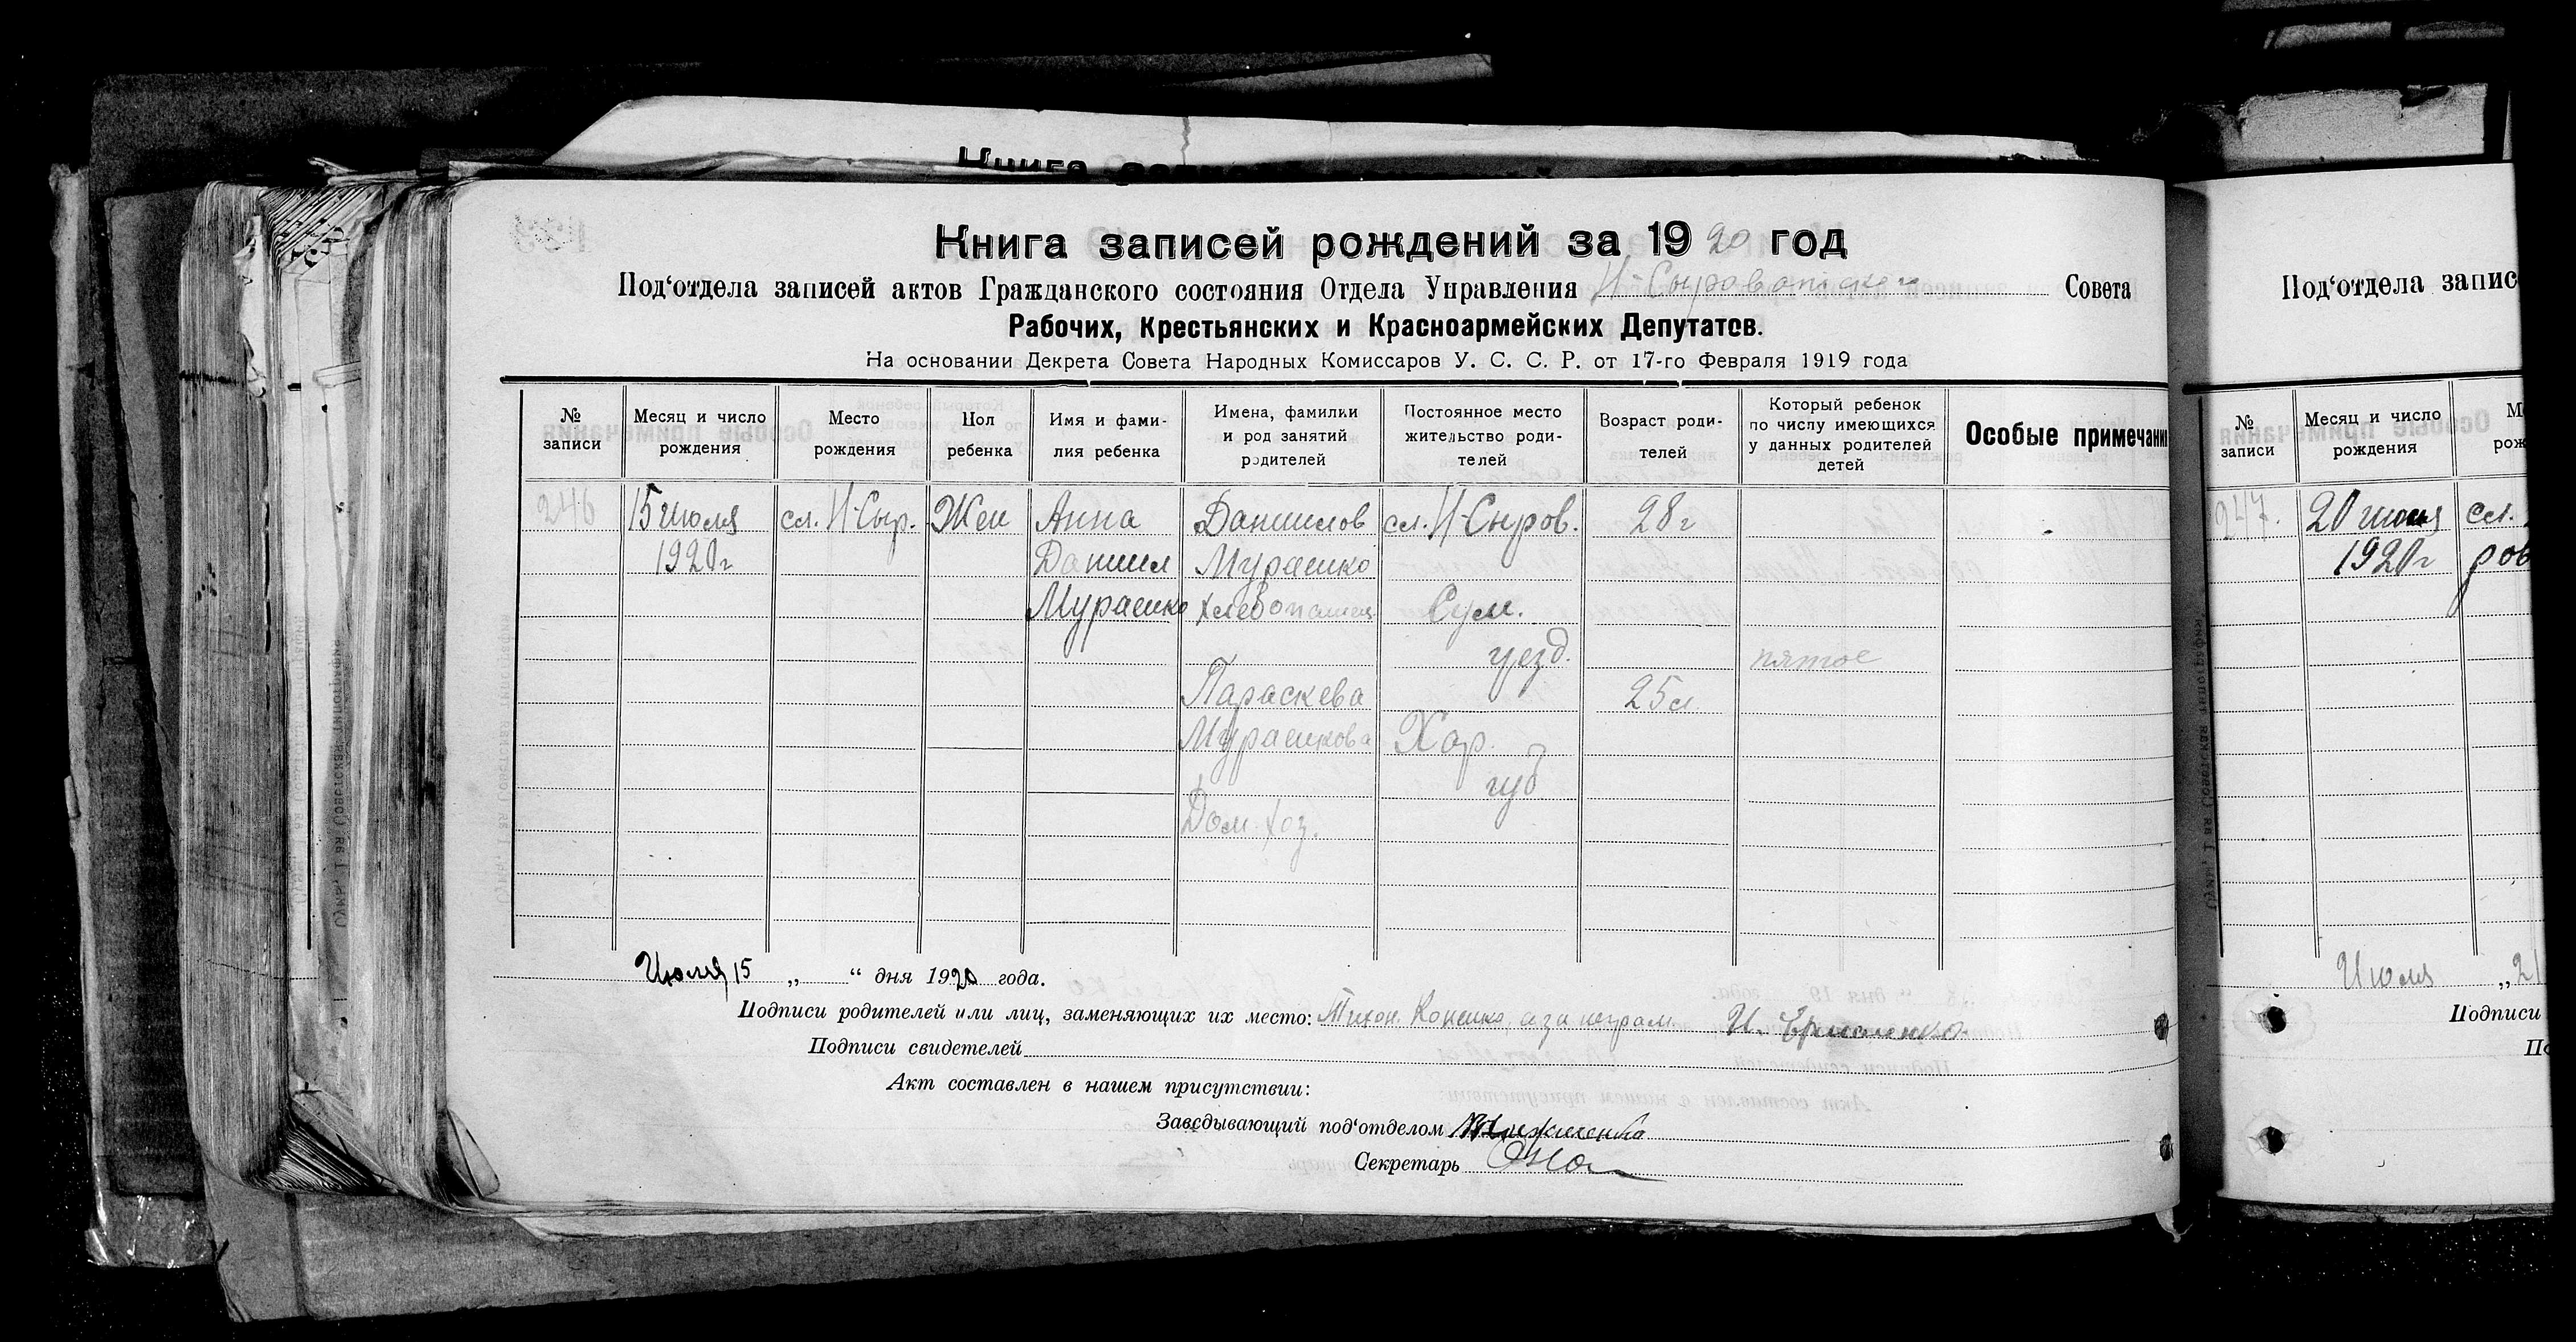 Книга записей рождений за 1920 год
Под‘отдела записей актов Гражданского состояния Отдела Управления Н-Сыроватского Совета
Рабочих, Крестьянских и Красноармейских Депутатов.
На основании Декрета Совета Народных Комиссаров У. С. С. Р. от 17-го Февраля 1919 года
№ записи
Месяц и число рождения
Место рождения
Пол ребенка
Имя и фами-
лия ребенка
Имена, фамилии
и род занятий
родителей
Постоянное место
жительство роди-
телей
Возраст роди-
телей
Который ребенок
по числу имеющихся
у данных родителей
детей
Особые примечани
246 15 июля сл. Н-Сыр. Жен Анна Даниилов сл. Н-Сыров. 28 г
1920 г Даниил Мурашко
Мурашко хлебопашец Сум.
уезд. пятое
Параскева 25 л
Мурашкова Хар.
губ
Дом. хоз.
Июля 15 „ “ дня 1920 года.
Подписи родителей или лиц, заменяющих их место: Тихон а за неграм. И. Ермоленко
Подписи свидетелей
Акт составлен в нашем присутствии:
Заведывающий под‘отделом
Секретарь
Под‘отдела запис
№ записи
Месяц и число рождения
М
рож
247. 20 июля сл.
1920 г ров
Июля „21
Подписи
По